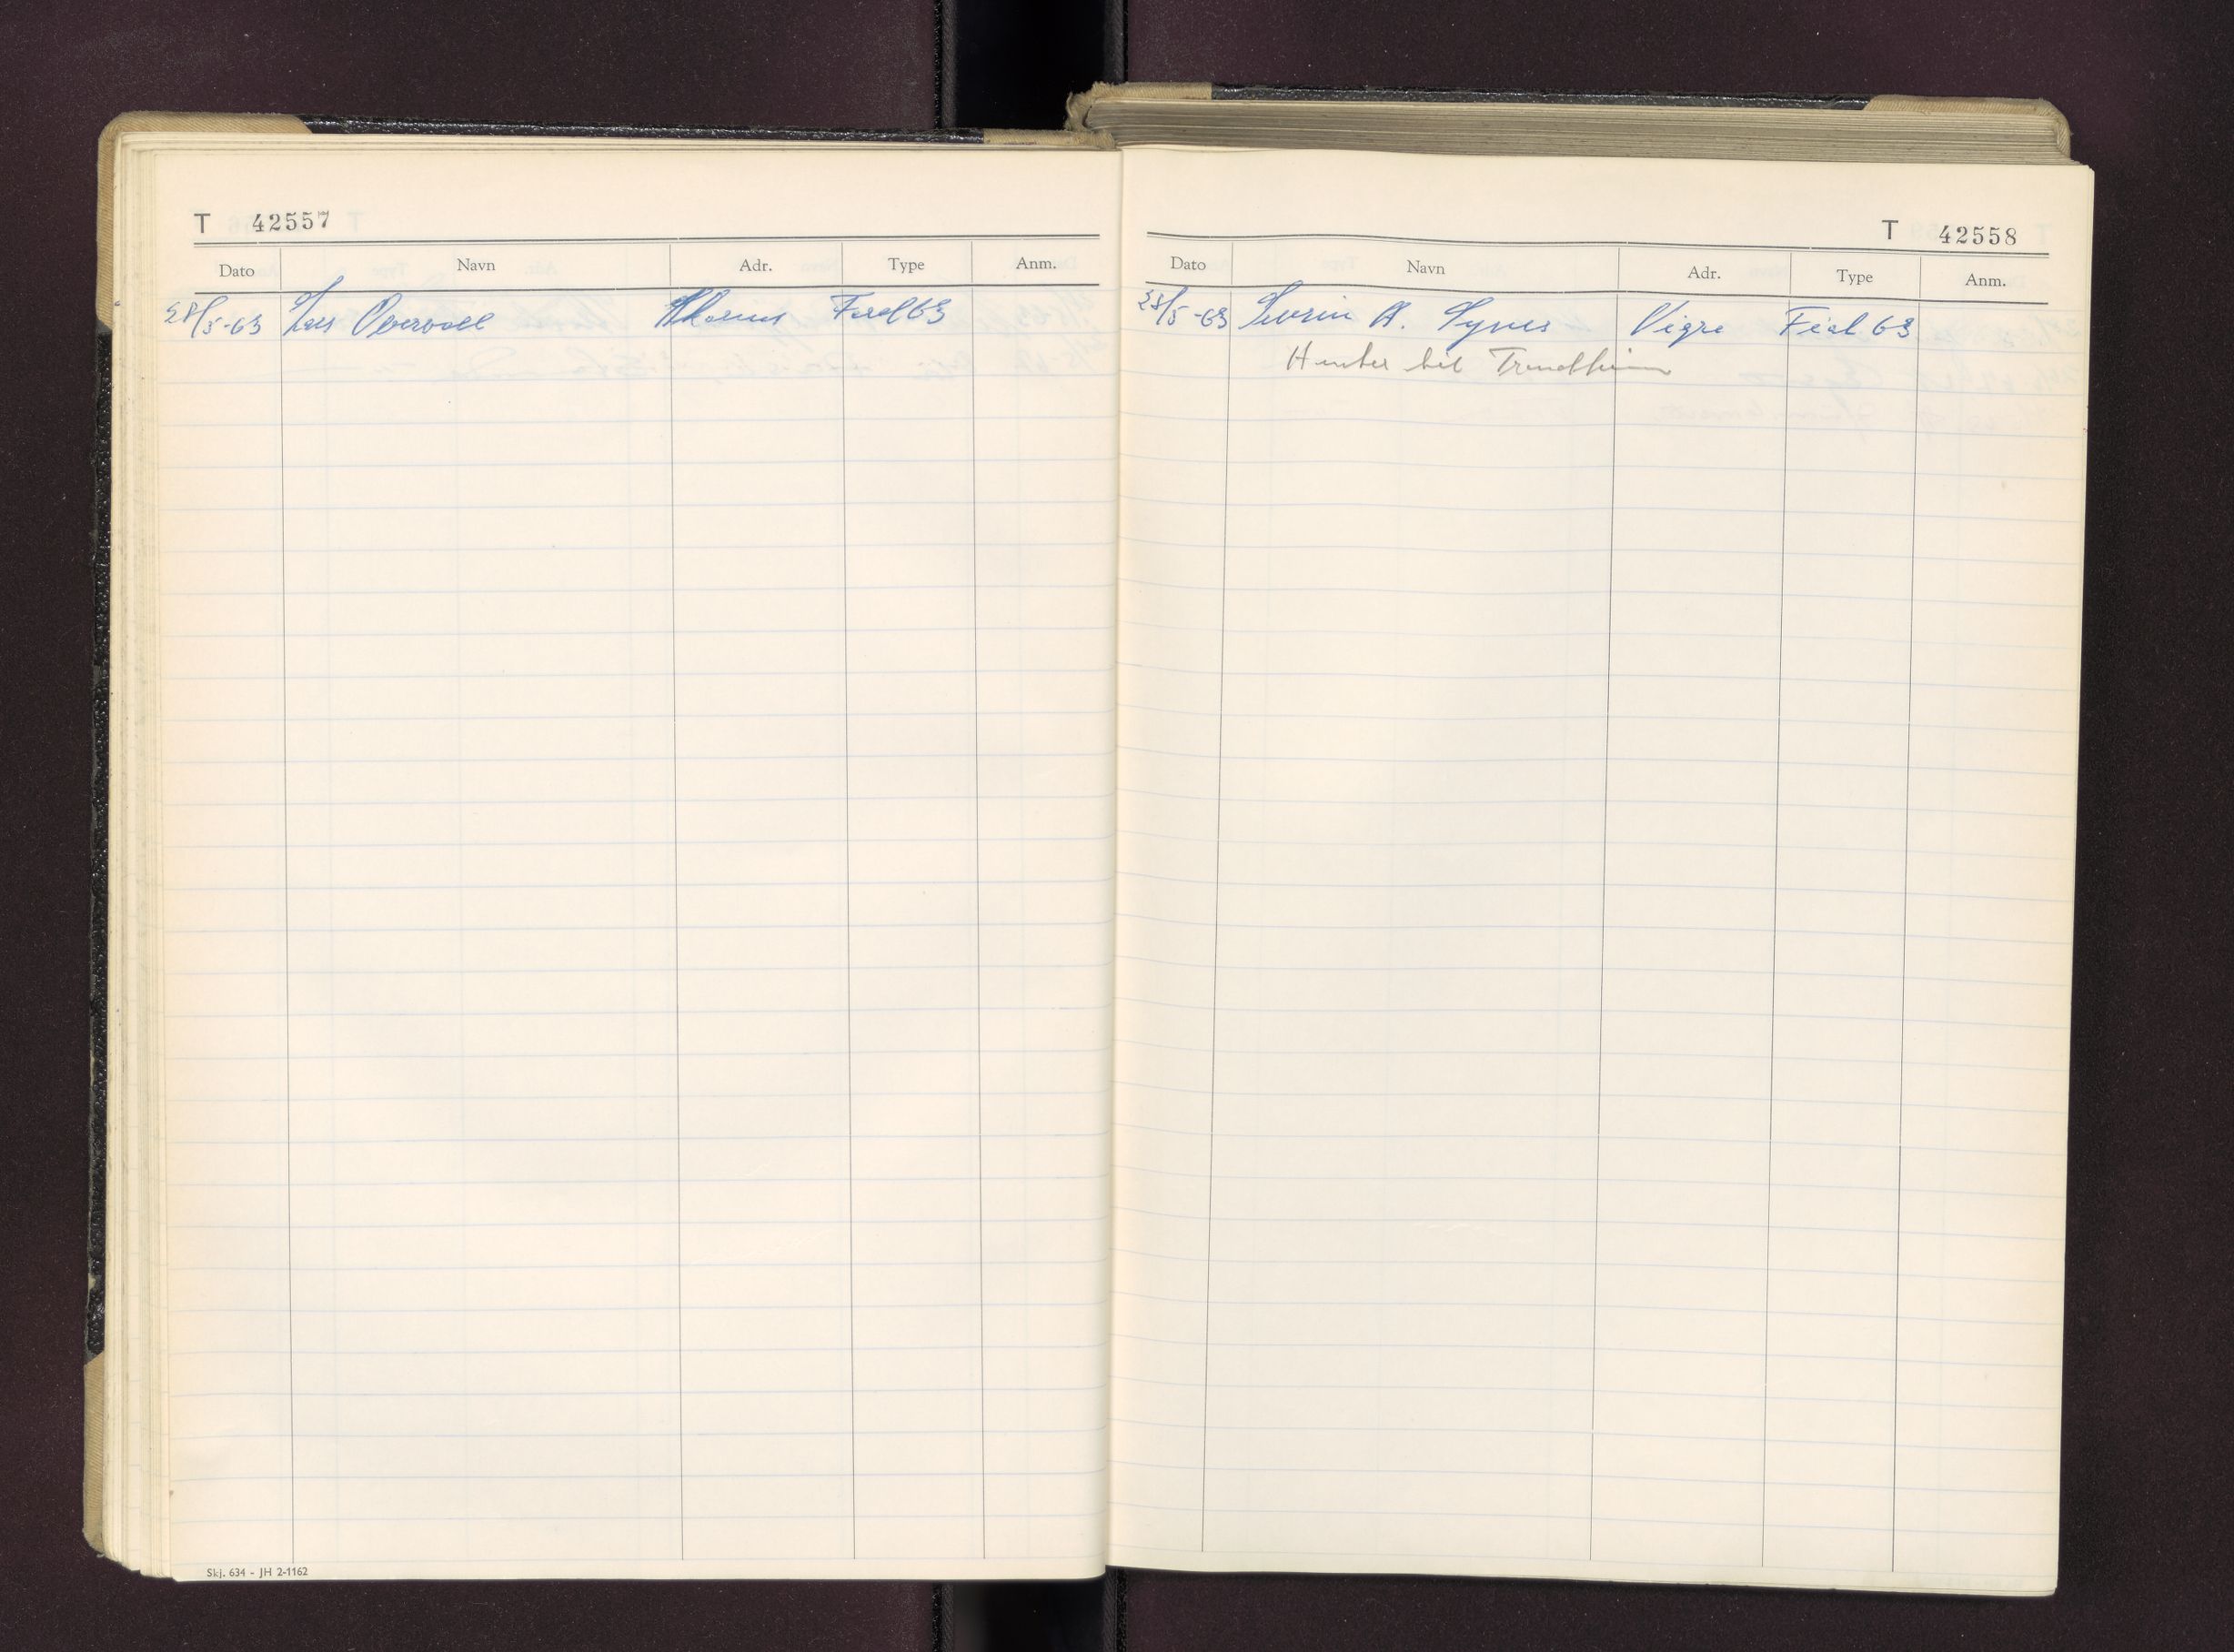 T 42557
Dato Navn Adr. Type Anm.
28/5-63 Lars Overvoll Ford 63
Skj. 634 - JH 2-1162
T 42558
Dato Navn Adr. Type Anm.
28/5-63 Severin A. Synes Vigra Ford 63
til Trondheim